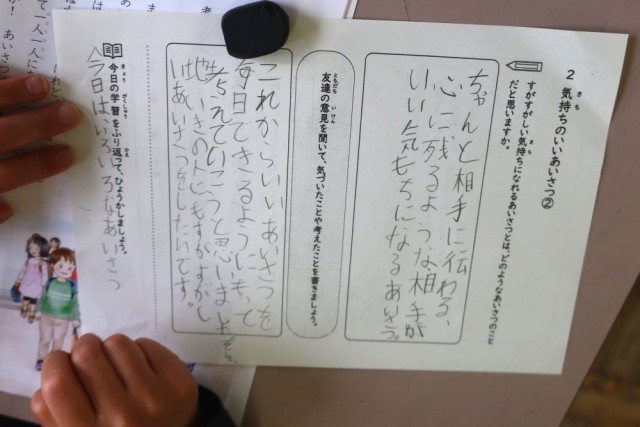 2 気持ちのいいあいさつ②
すがすがしい気持ちになれるあいさつとは、どのようなあいさつのこと
だと思いますか。
ちゃんと相手に伝わる、
心に残るような相手が
いい気もちになるあいさつ。
友達の意見を聞いて、気づいたことや考えたことを書きましょう。
これからいいあいさつを
毎日できるようにもって
考えていこうと思いました。
地いきの人にもすがすがし
いあいさつをしたいです。
今日の学習をふり返って、ひょうかしましょう。
今日は、いろいろなあいさつ